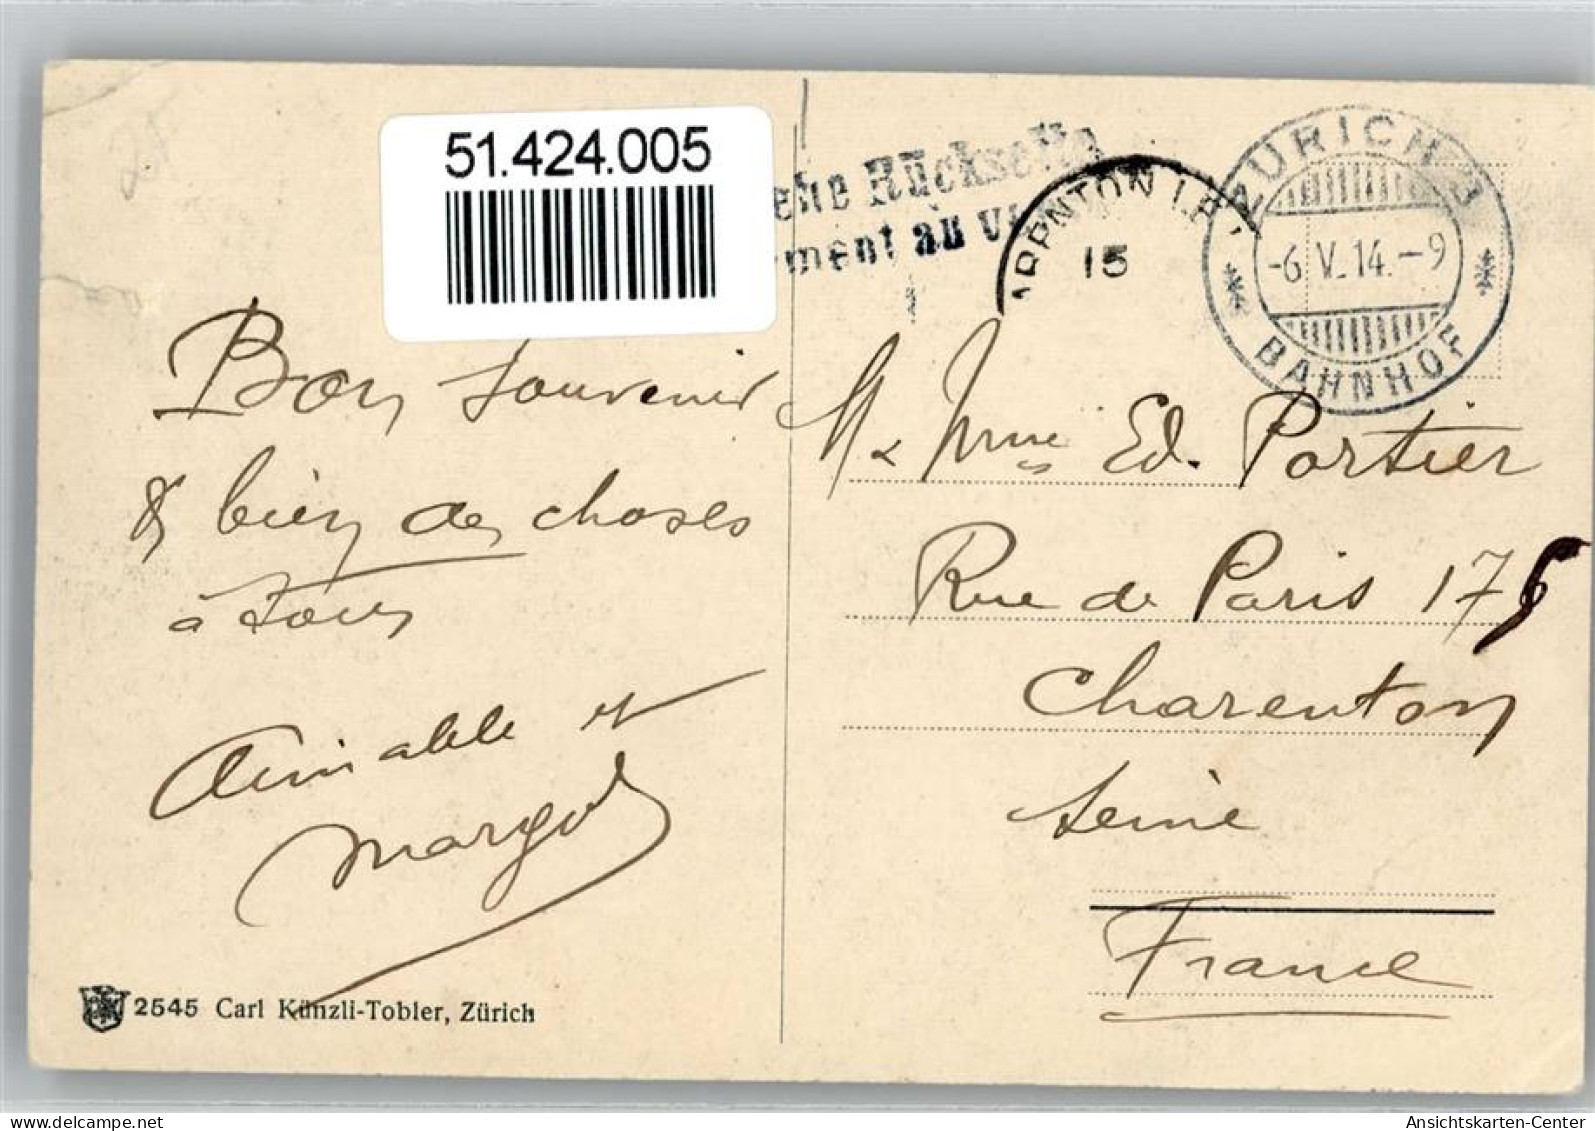 51.424.005
Rückseite
ment au
15
ZÜRICH
-6.V.14.-9
BAHNHOF
Bon souvenir
& bien des choses
à tous
Aimable et
Margot
M & Mme Ed. Portier
Rue de Paris 175
Charenton
Seine
France
2545 Carl Künzli-Tobler, Zürich
Ansichtskarten-Center